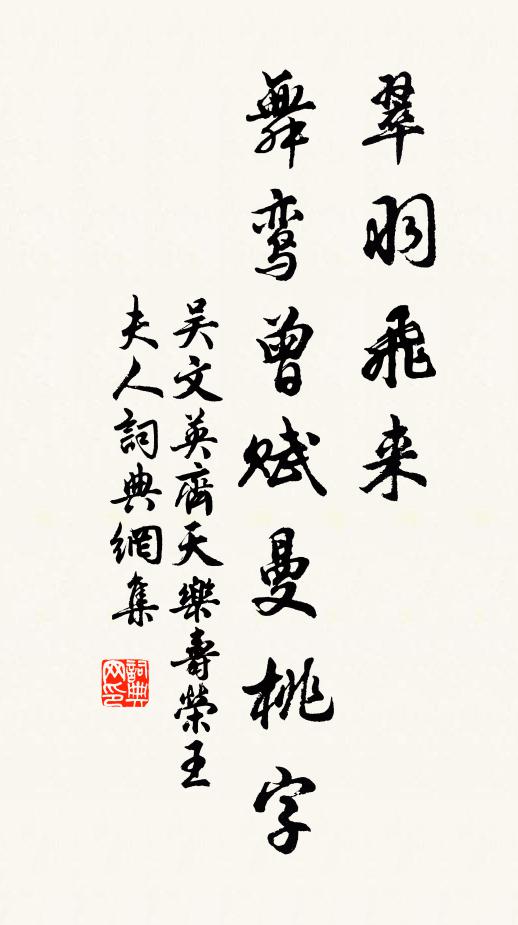 翠羽飛来
舞鸾曾赋曼桃字
吴文英齊天樂壽榮王
夫人詞典網集
詞典
网印